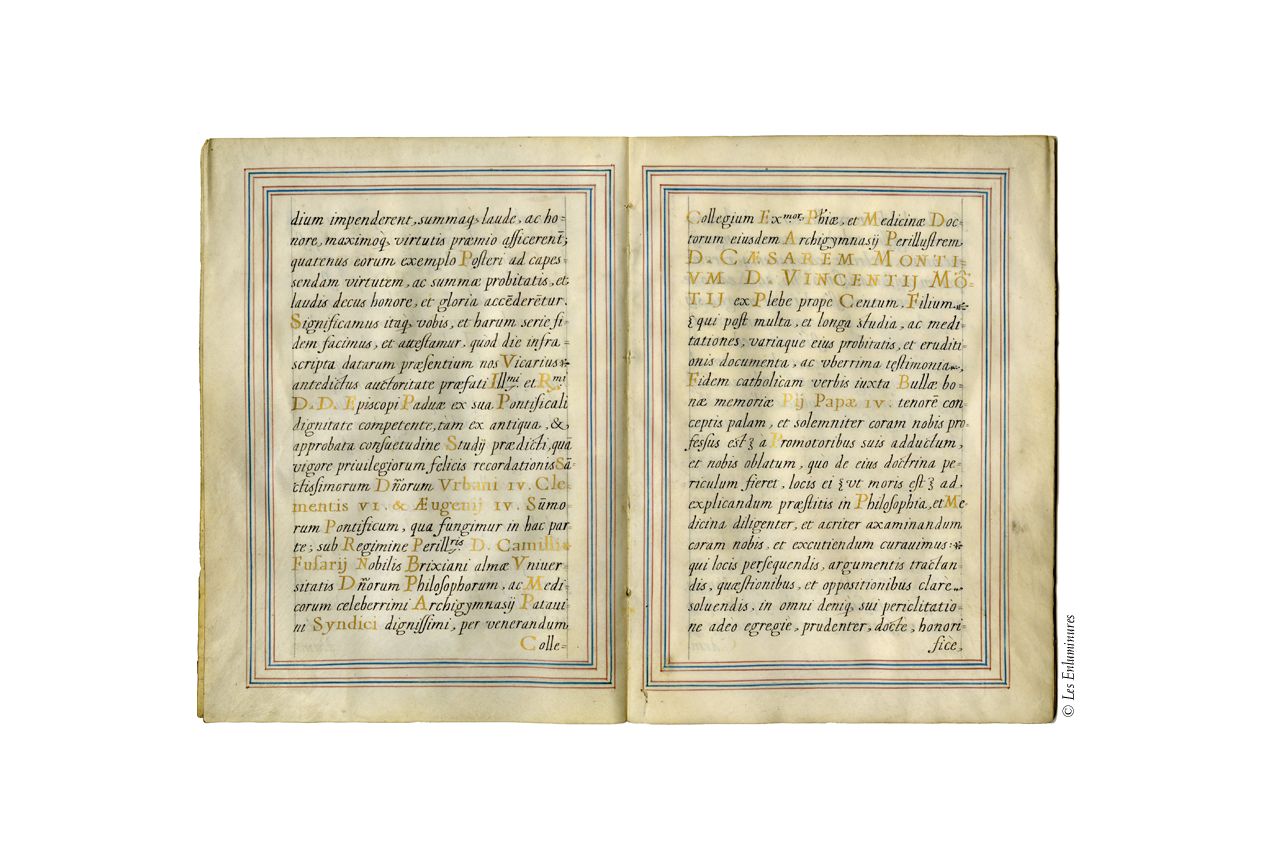 dium impenderent, summaq; laude, ac ho=
nore, maximoq; virtutis præmio afficerent̄;
quatenus eorum exemplo Posteri ad capes=
sendam virtutem, ac summæ probitatis, et
laudis decus honore, et gloria accēderētur.
Significamus itaq; vobis, et harum serie fi=
dem facimus, et attestamur, quod die infra=
scripta datarum præsentium nos Vicarius
antedictus auctoritate præfati Illmi. et Rmi.
D. D. Episcopi Paduæ ex sua Pontificali
dignitate competente, tàm ex antiqua, &
approbata consuetudine Studij prædicti, quā
vigore priuilegiorum felicis recordationis Sā=
ctissimorum Dñorum Vrbani IV. Cle=
mentis VI. & Æugenij IV. Sūmo=
rum Pontificum, qua fungimur in hac par=
te; sub Regimine Perillris. D. Camilli
Fusarij Nobilis Brixiani almæ Vniuer=
sitatis Dñorum Philosophorum, ac Medi=
corum celeberrimi Archigymnasij Pataui=
ni Syndici dignissimi, per venerandum
Colle=
Collegium Exmor. Phiæ, et Medicinæ Doc=
torum eiusdem Archigymnasij Perillustrem
D. CÆSAREM MONTI=
VM D. VINCENTIJ MŌ=
TIJ ex Plebe propè Centum. Filium
qui post multa, et longa studia, ac medi=
tationes, variaque eius probitatis, et eruditi=
onis documenta, ac vberrima testimonia
Fidem catholicam verbis iuxta Bullæ bo=
næ memoriæ Pij Papæ IV. tenorē con=
ceptis palam, et solemniter coram nobis pro=
fessus est a Promotoribus suis adductum,
et nobis oblatum, quo de eius doctrina pe=
riculum fieret, locis ei vt moris est ad
explicandum præstitis in Philosophia, et Me=
dicina diligenter, et acriter axaminandum
coram nobis, et excutiendum curauimus:
qui locis persequendis, argumentis tractan=
dis, quæstionibus, et oppositionibus clarè
soluendis, in omni deniq; sui periclitatio=
ne adeo egregie, prudenter, docte, honori=
ficè,
© Les Enluminures